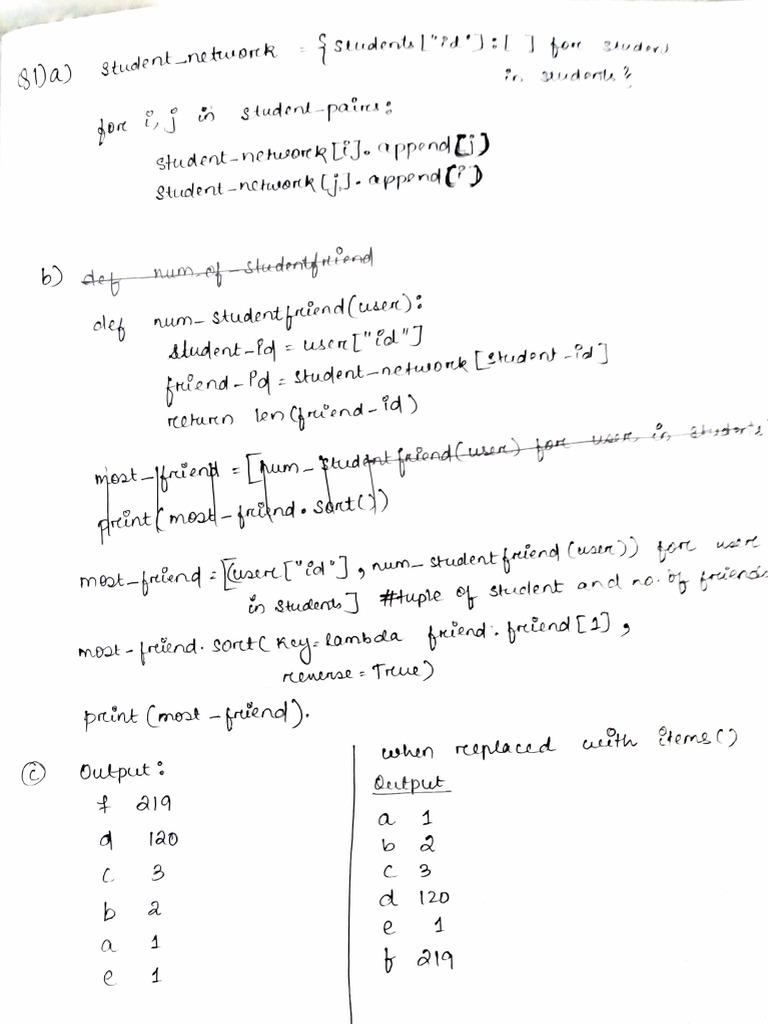 Q1)a) student_network = {students["id"]:[ ] for student
in students}
for i, j in student-paires:
student-network[i].append[j)
student-network[j].append(i)
b) def num_of-studentfriend
def num-studentfriend(user):
student-id = user["id"]
friend-id = student-network[student-id]
return len(friend-id)
most-friend = [num-studentfriend(user) for user in students
print(most-friend.sort())
most-friend = [(user["id"], num-studentfriend(user)) for user
in students] #tuple of student and no. of friends
most-friend.sort(key=lambda friend: friend[1],
reverse=True)
print(most-friend).
(c) Output:
f 219
d 120
c 3
b 2
a 1
e 1
when replaced with items()
Output
a 1
b 2
c 3
d 120
e 1
f 219